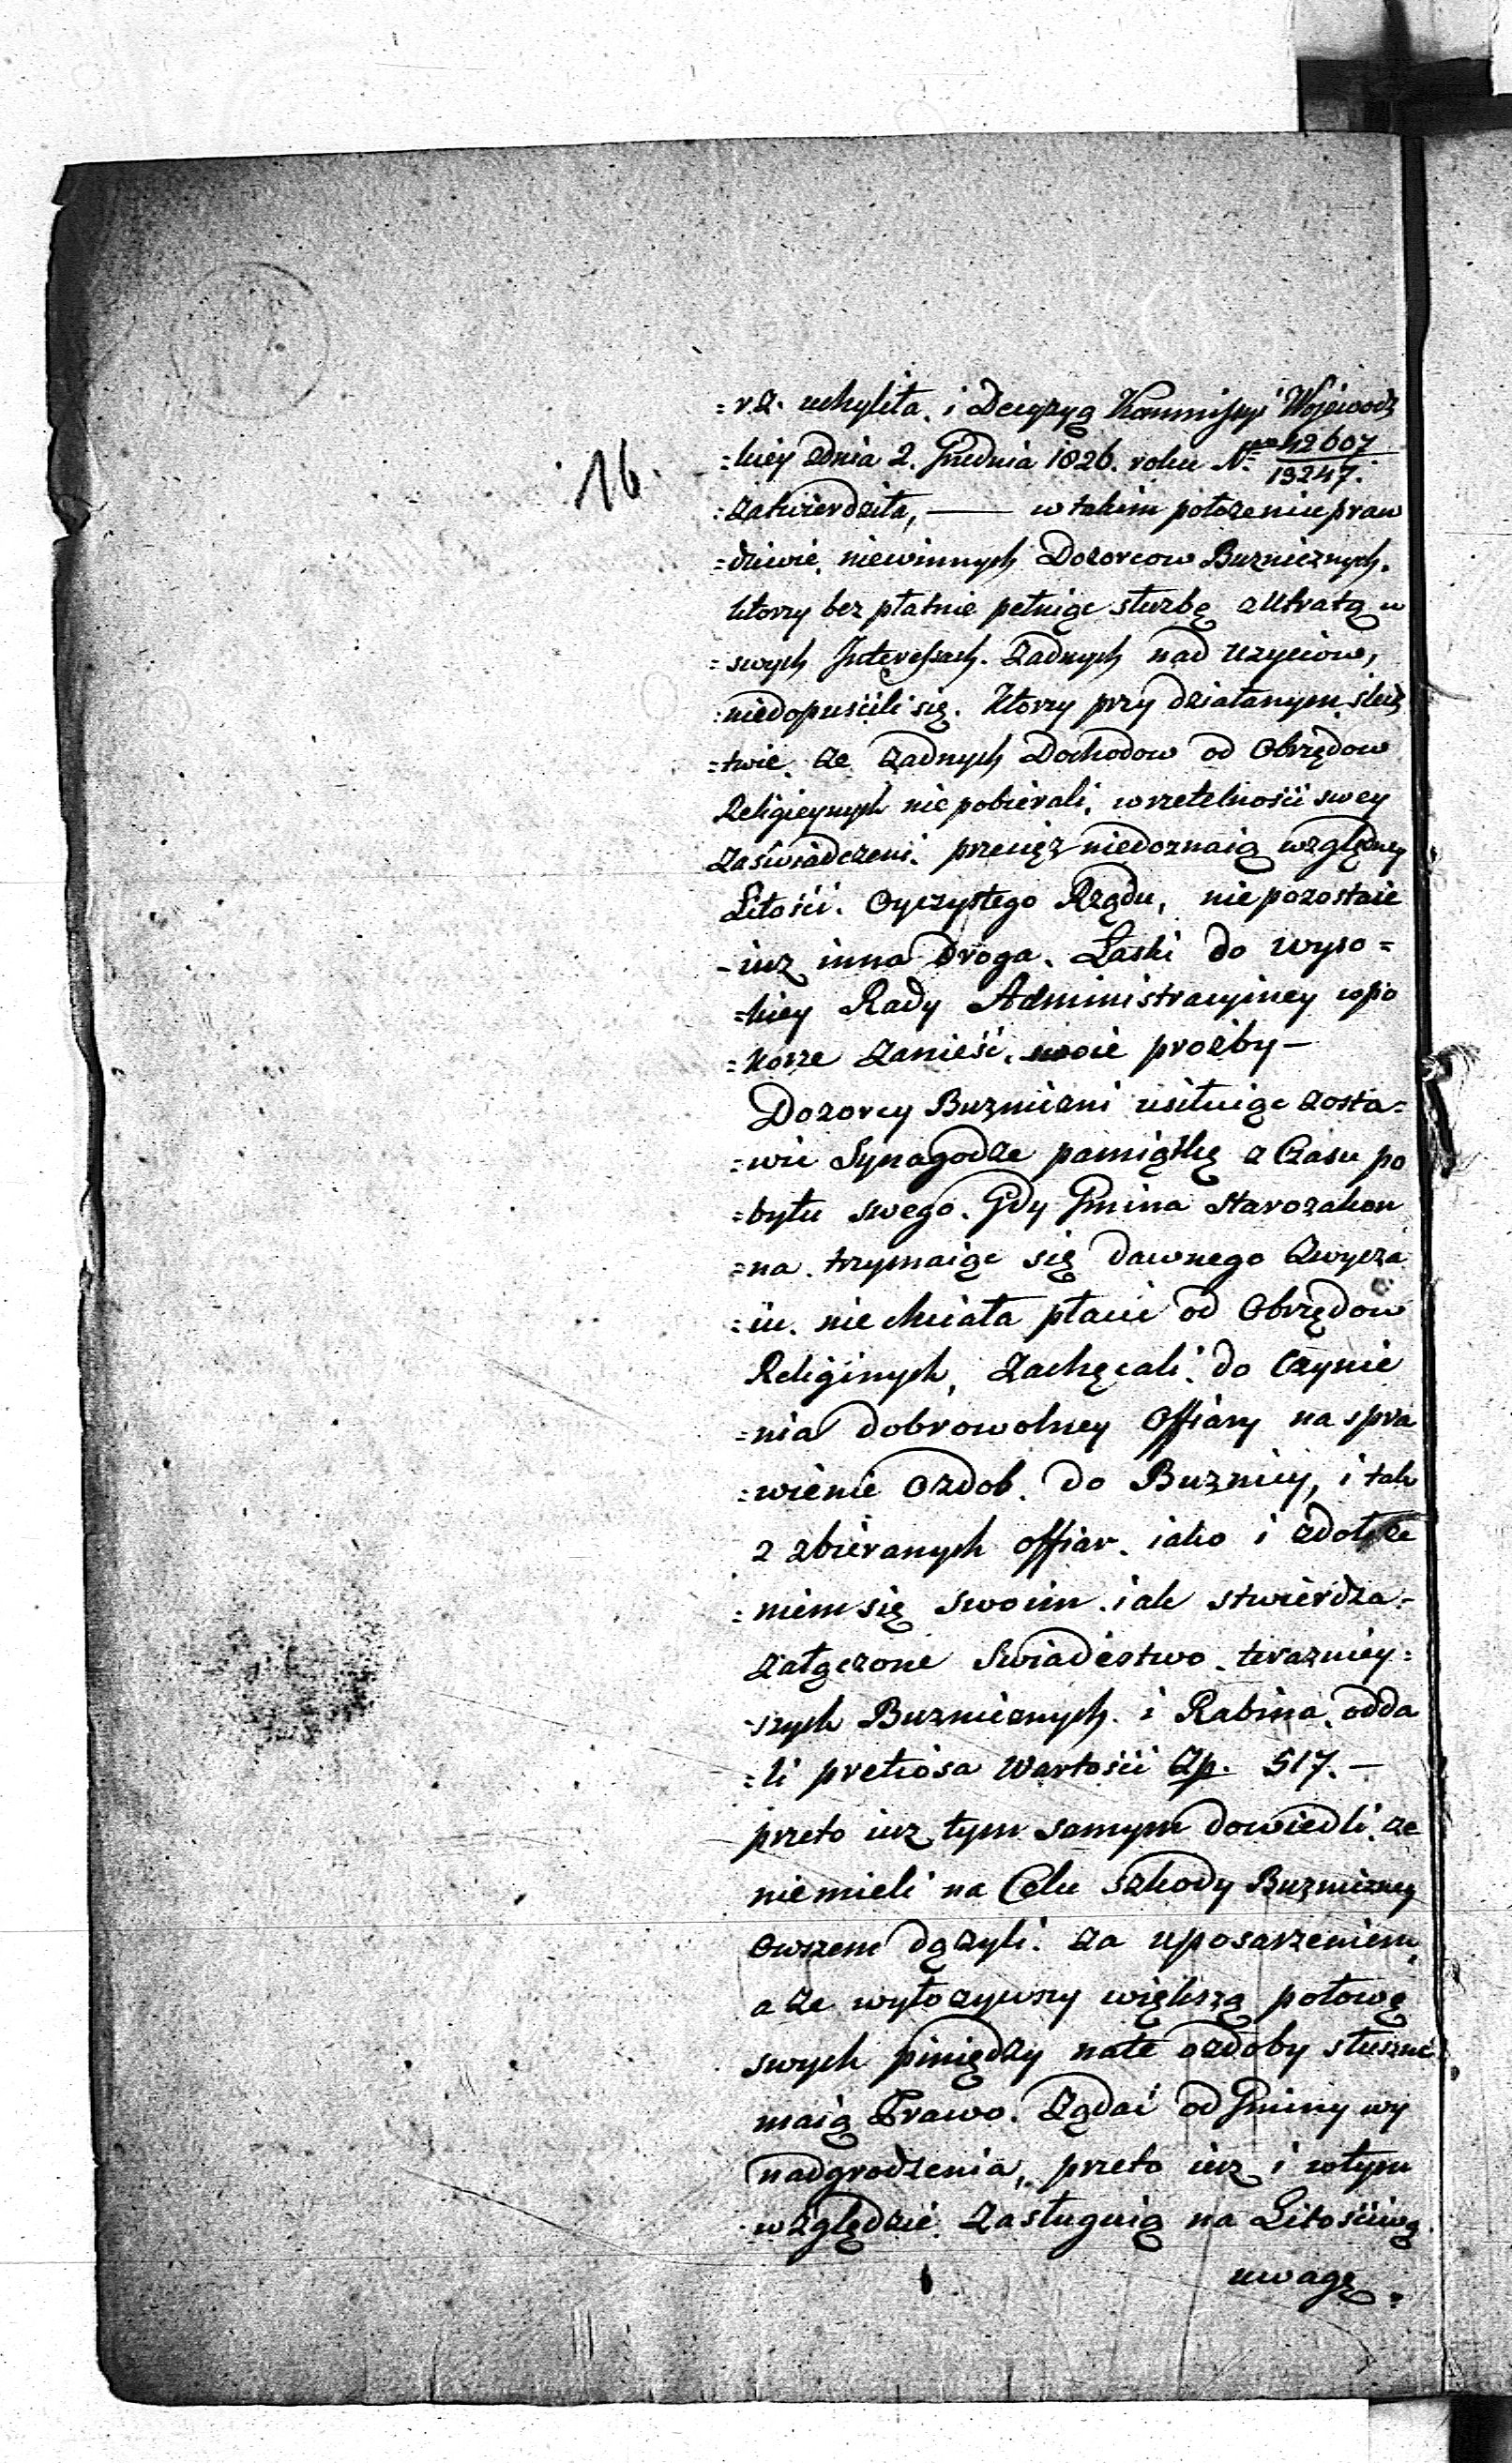 =rz. uchyliła. i Decyzyą Kommissyi Wojewodz
=kiey zdnia 2. Grudnia 1826. roku N. 42607
13247.
16.
=zatwierdziła, — wtakim położeniu praw
=dziwie. niewinnych Dozorcow Buzniczych.
ktorzy bez płatnie pełniąc służbę z Utratą w
=swych Interessach. Zadnych nad Uzyciow,
=niedopuścili się. Ktorzy przy działanym śledz
=twie. ze Zadnych Dochodow od Obrzędow
Religieynych nie pobierali, w rzetelności swey
Zaświadczeni. przecięz niedoznaią względney
Litości. Oyczystego Rządu, nie pozostaie
-iuz inna Droga. Łaski do wyso=
=kiey Rady Administracyiney wpo
=korze Zanieść. swoie prozby—
Dozorcy Buzniczni usiłuiąc zosta=
=wić Synagodze pamiątkę z Czasu po
=bytu swego. Gdy Gmina Starozakon
=na. trzymaiąc się dawnego Zwycza
=iu. nie chciała płacić od Obrzędow
Religiinych, Zachęcali. do Czynie
=nia dobrowolney Offiary na spra
=wienie Ozdob. do Buznicy, i tak
z zbieranych offiar. iako i zdołoze
=niem się swoim. iak stwierdza-
Załączone Swiadectwo. terazniey=
-szych Buznicznych. i Rabina. odda
=li pretiosa Wartości Zp. 517.—
przeto iuz tym samym dowiedli. ze
niemieli na Celu Szkody Buzniczney
Owszem dązyli. za uposarzeniem,
a ze wyłozywszy większą połowę
swych pinięndzy nate ozdoby słuszne
maią Prawo. Ządać od Gminy wy
nadgrodzenia, przeto iuz i wtym
względzie. Zasługuią na Litościwą
uwagę.